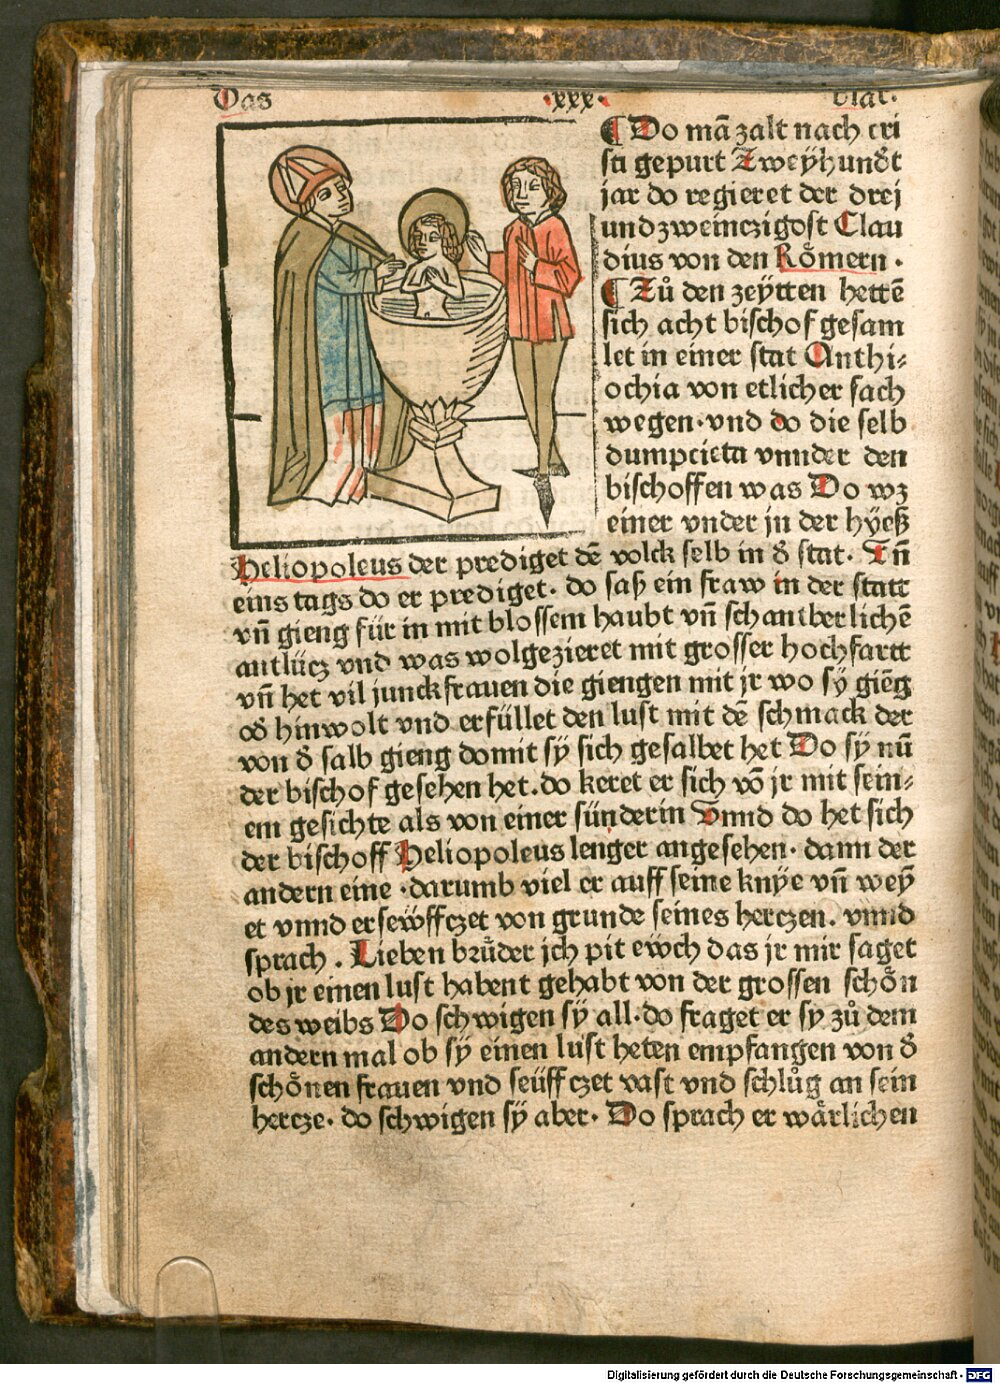 Das ·xxx· blat·
¶ Do mā zalt nach cri
sti gepurt Zweyhundt
jar do regieret der drej
und zweinczigost Clau
dius von den Römern ·
¶ Zů den zeytten hettē
sich acht bischof gesam
let in einer stat Anthi⸗
ochia von etlicher sach
wegen· vnd do die selb
dumpcieta vnnder den
bischoffen was Do wz
einer vnder jn der hyeß
Heliopoleus der prediget dē volck selb in d̉ stat· Vn̄
eins tags do er prediget· do saß ein fraw in der statt
vn̄ gieng für in mit blossem haubt vn̄ schamberlichē
antlücz vnd was wolgezieret mit grosser hochfartt
vn̄ het vil junckfrauen die giengen mit jr wo sy giēg
od̉ hin wolt vnd erfüllet den luft mit dē schmack der
von d̉ salb gieng domit sy sich gesalbet het Do sy nū
der bischof gesehen het. do keret er sich vō jr mit sein⸗
em gesichte als von einer sünderin Vnnd do het sich
der bischoff Heliopoleus lenger angesehen· dann der
andern eine · darumb viel er auff seine knye vn̄ wey
et vnnd ersewffczet von grunde seines herczen. vnnd
sprach . Lieben brůder jch pit ewch das jr mir saget
ob jr einen lust habent gehabt von der grossen schön
des weibs Do schwigen sy all· do fraget er sy zů dem
andern mal ob sy einen lust heten empfangen von d̉
schönen frauen vnd seüffczet vast vnd schlůg an sein
hercze· do schwigen sy aber· Do sprach er wärlichen
Digitalisierung gefördert durch die Deutsche Forschungsgemeinschaft - DFG